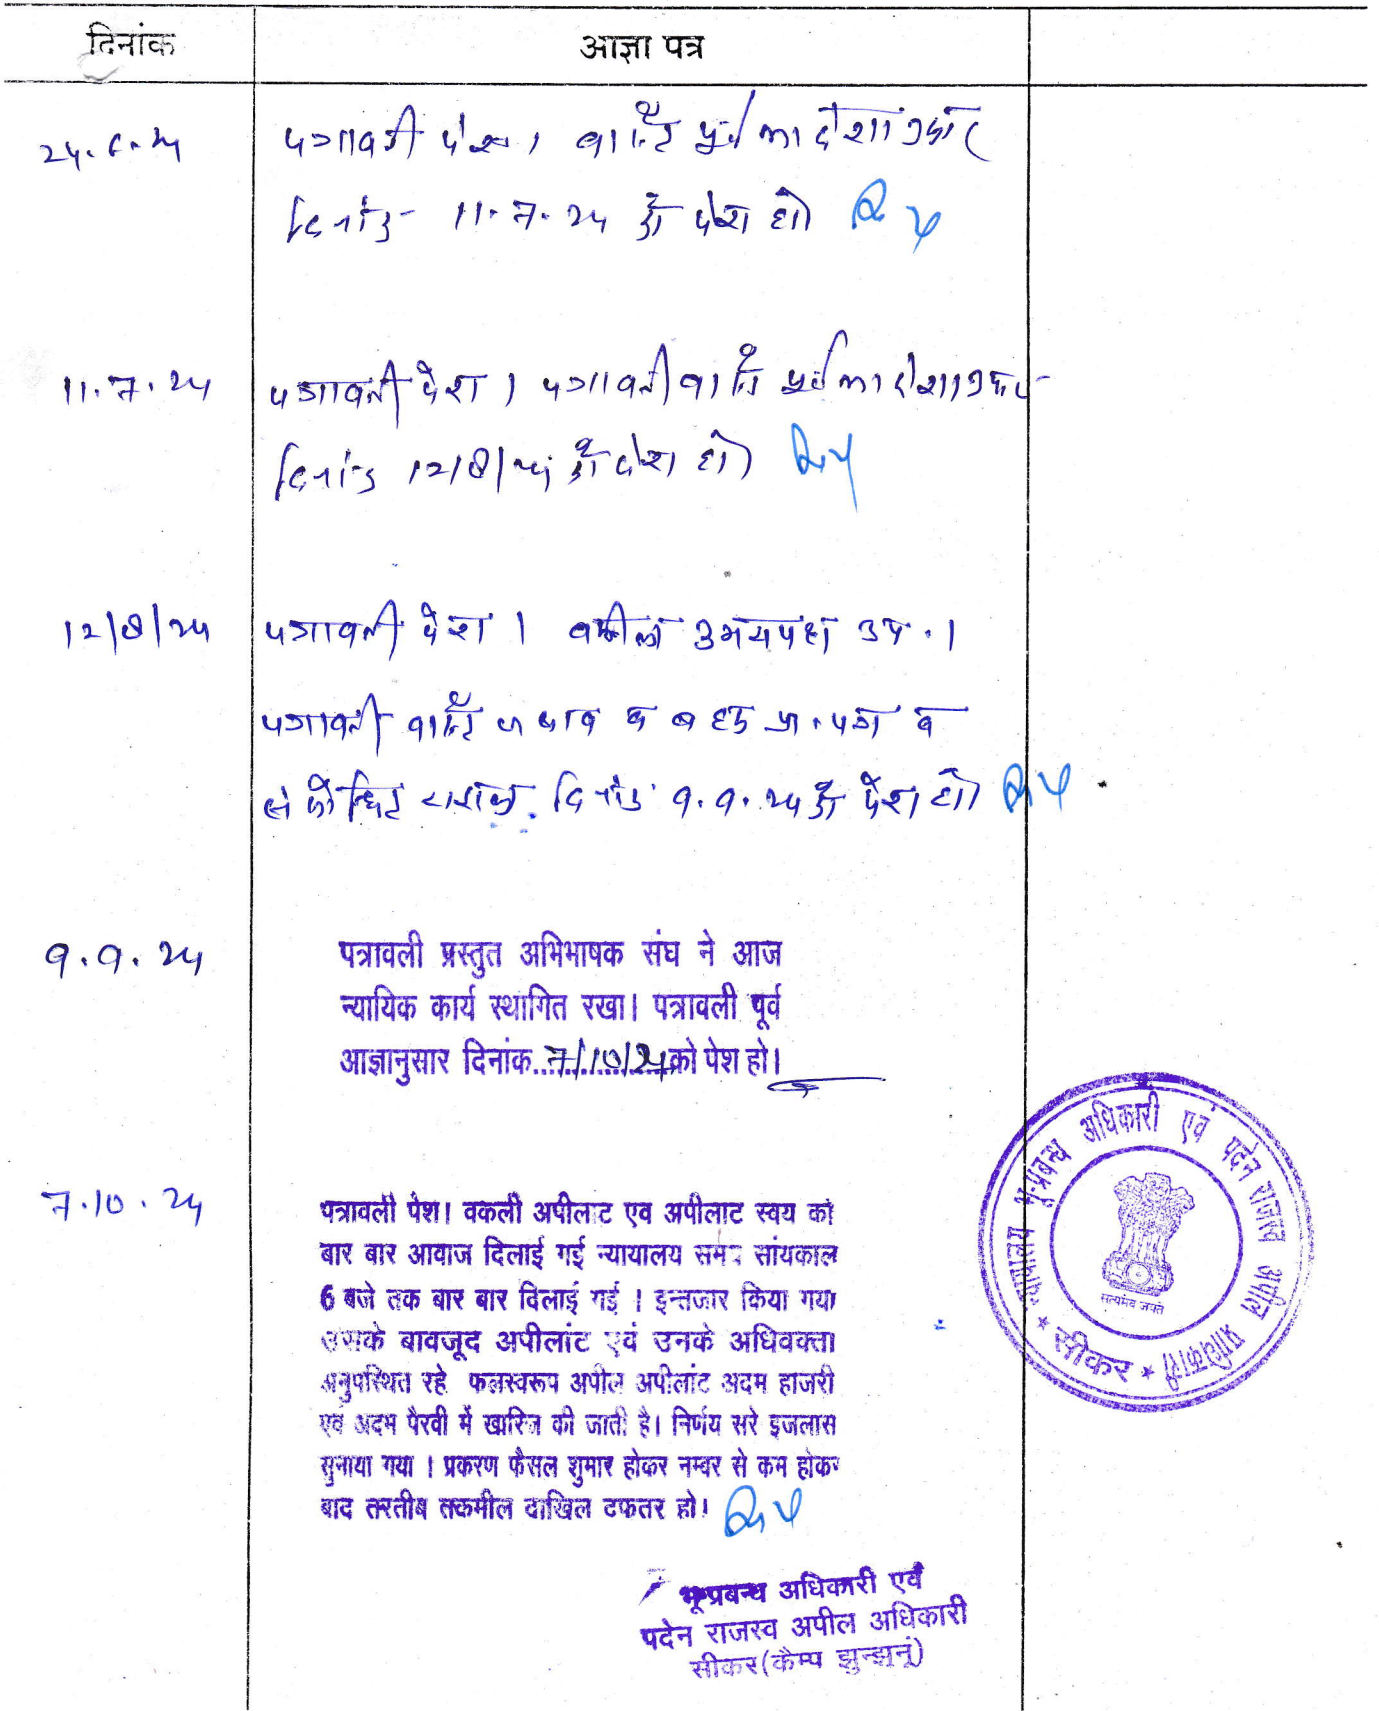 दिनांक
आज्ञा पत्र
24.6.24
पत्रावली पेश। वास्ते पूर्व आदेशानुसार
दिनांक 11.7.24 को पेश हो
11.7.24
पत्रावली पेश। पत्रावली वास्ते पूर्व आदेशानुसार
दिनांक 12/8/24 को पेश हो
12/8/24
पत्रावली पेश। वकील उभयपक्ष उप.।
पत्रावली वास्ते जवाब व बहस प्रा.पत्र व
दिनांक 9.9.24 को पेश हो
9.9.24
पत्रावली प्रस्तुत अभिभाषक संघ ने आज
न्यायिक कार्य स्थागित रखा। पत्रावली पूर्व
आज्ञानुसार दिनांक 7/10/24 को पेश हो।
7.10.24
पत्रावली पेश। वकली अपीलाट एव अपीलाट स्वय को
बार बार आवाज दिलाई गई न्यायालय समय सांयकाल
6 बजे तक बार बार दिलाई गई । इन्तजार किया गया
उसके बावजूद अपीलांट एवं उनके अधिवक्ता
अनुपस्थित रहे फलस्वरूप अपील अपीलांट अदम हाजरी
एवं अदम पैरवी में खारिज की जाती है। निर्णय सरे इजलास
सुनाया गया । प्रकरण फैसल शुमार होकर नम्बर से कम होकर
बाद तरतीब तकमील दाखिल दफतर हो।
भू-प्रबन्ध अधिकारी एवं
पदेन राजस्व अपील अधिकारी
सीकर (कैम्प झुन्झुनूं)
न्यायालय भू-प्रबन्ध अधिकारी एवं पदेन राजस्व अपील प्राधिकारी
* सीकर *
सत्यमेव जयते